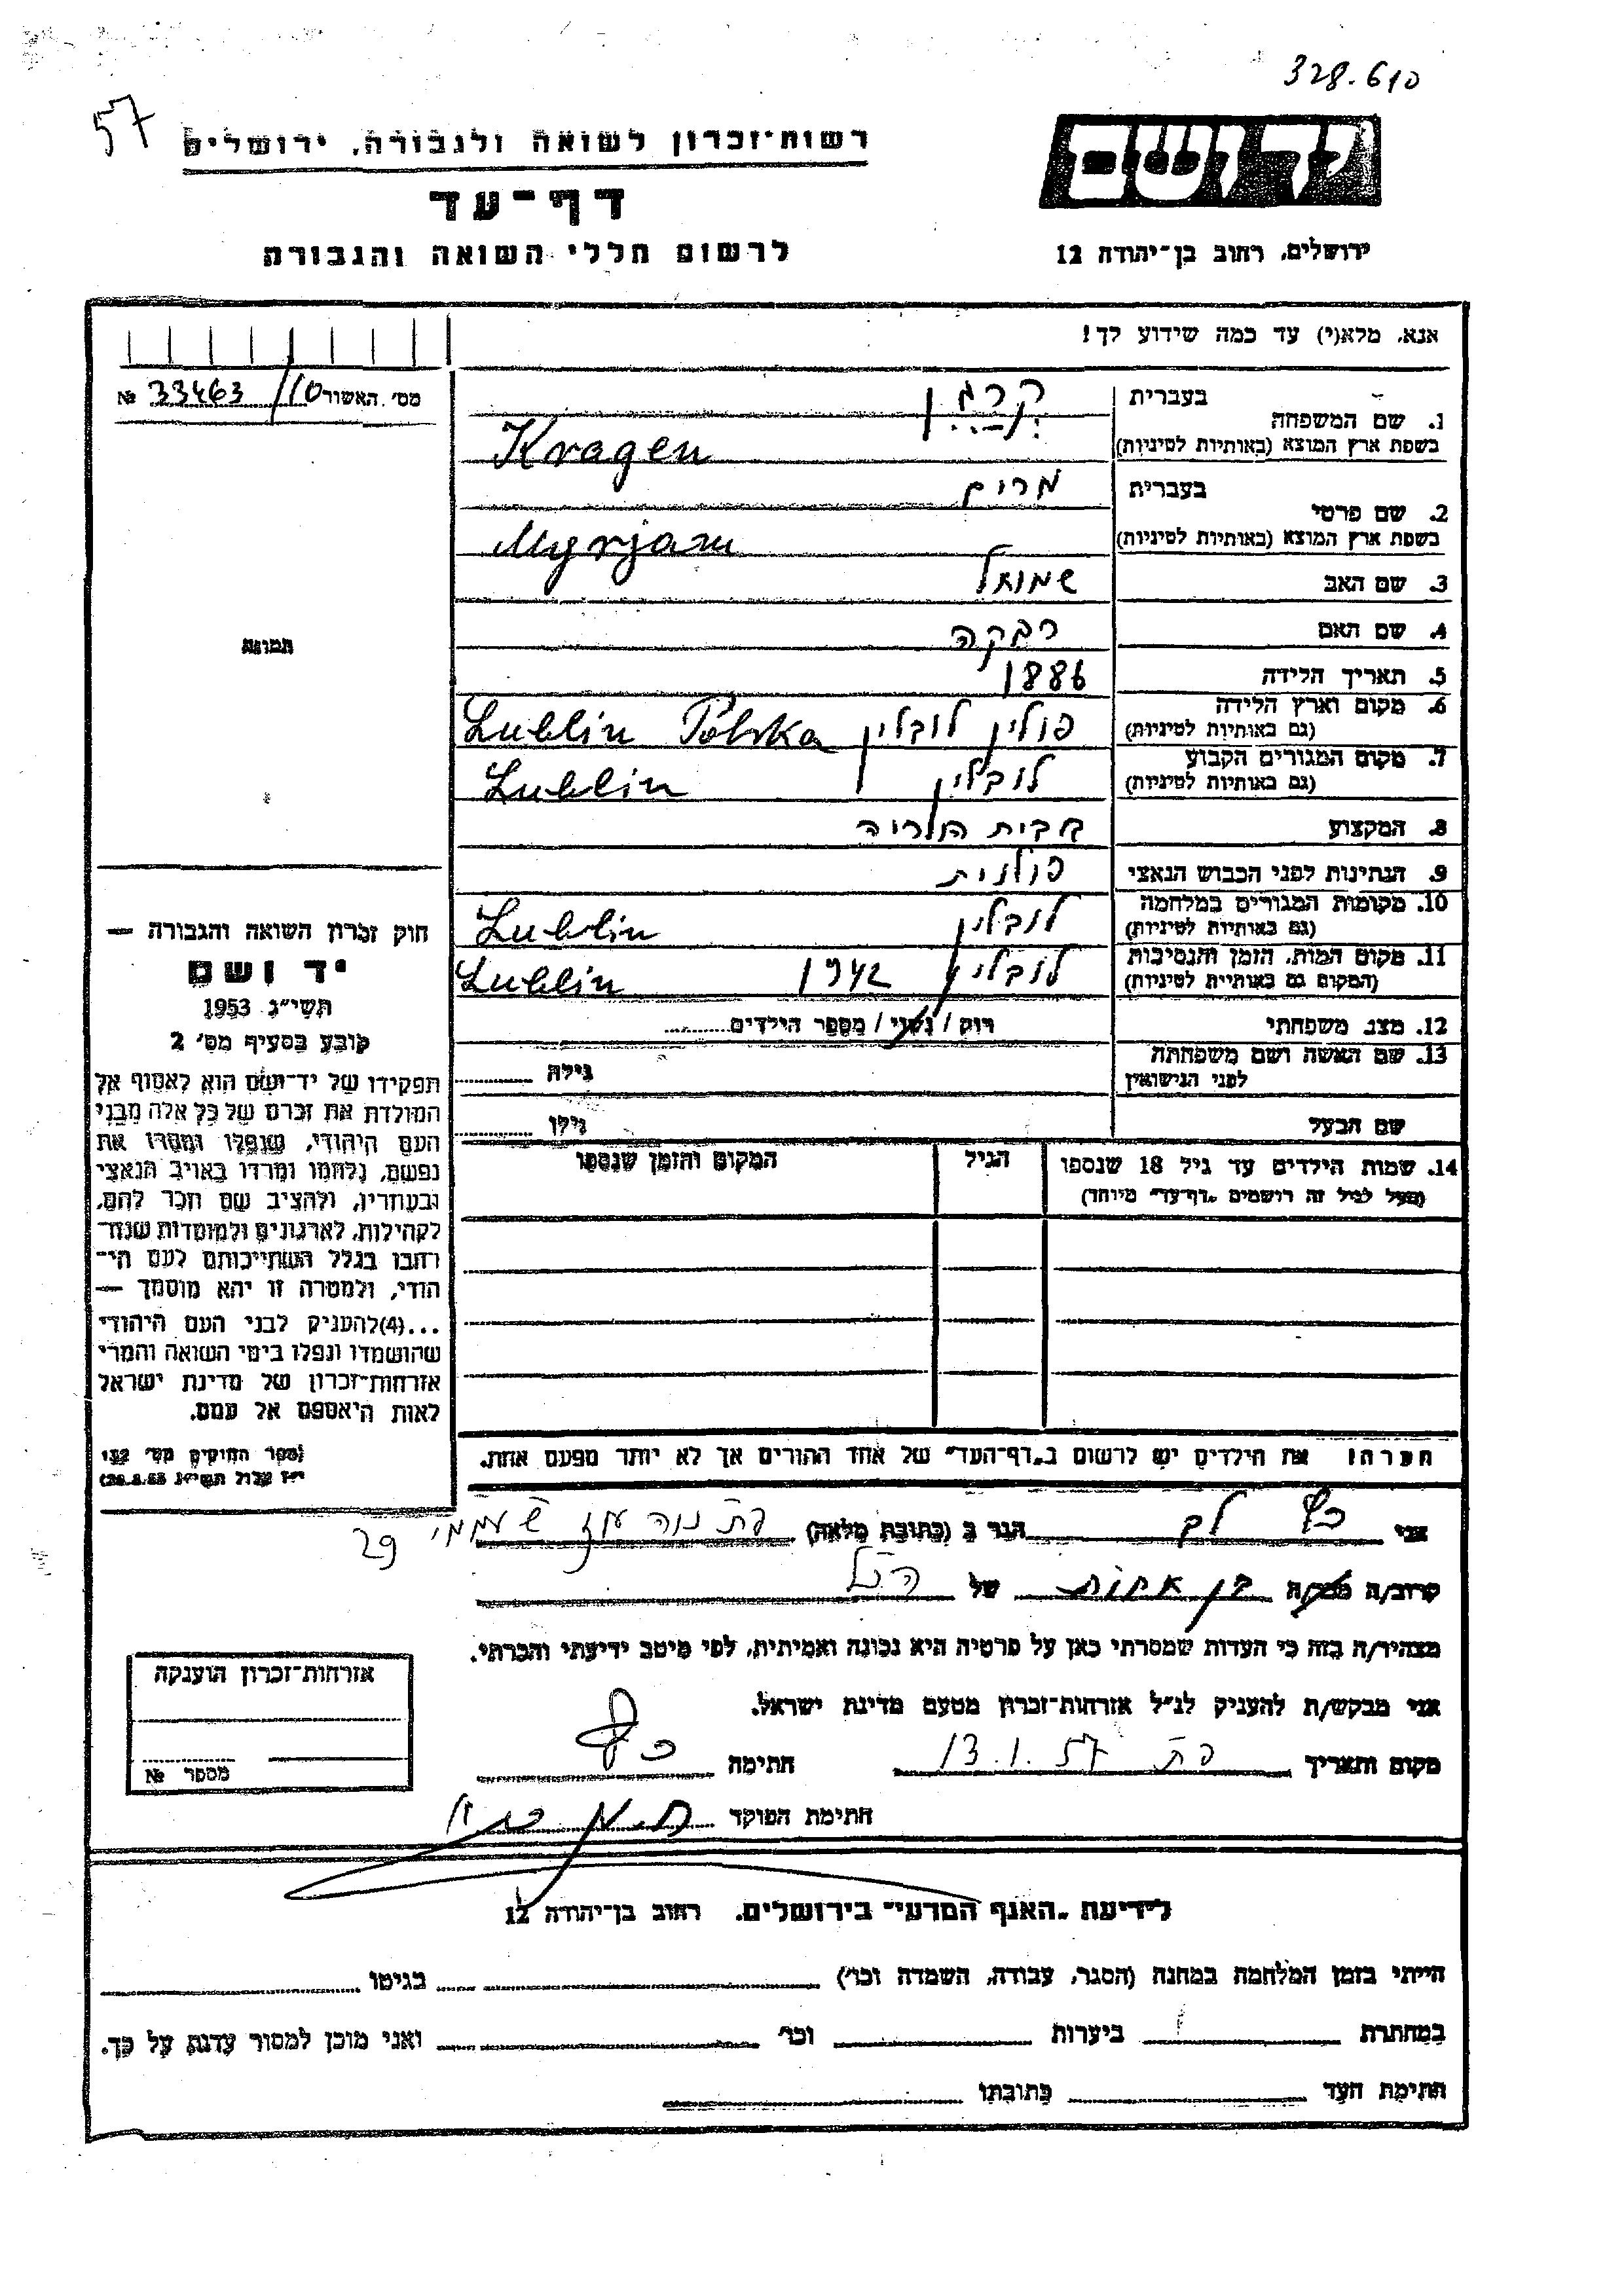 328.610
57
רשות־זכרון לשואה ולגבורה, ירושלים
יד ושם
דף־עד
לרשום חללי השואה והגבורה
ירושלים, רחוב בן־יהודה 12
אנא, מלא(י) עד כמה שידוע לך!
מס׳ האשור 33463/10 №
בעברית קרגן
1. שם המשפחה
בשפת ארץ המוצא (באותיות לטיניות) Kragen
בעברית מרים
2. שם פרטי
בשפת ארץ המוצא (באותיות לטיניות) Myrjam
3. שם האב שמואל
4. שם האם רבקה
תמונה
5. תאריך הלידה 1886
6. מקום וארץ הלידה
(גם באותיות לטיניות) פולין לובלין Lublin Polska
7. מקום המגורים הקבוע
(גם באותיות לטיניות) לובלין Lublin
8. המקצוע
9. הנתינות לפני הכבוש הנאצי פולנית
10. מקומות המגורים במלחמה
(גם באותיות לטיניות) לובלין Lublin
11. מקום המות, הזמן והנסיבות
(המקום גם באותיות לטיניות) לובלין 1942 Lublin
12. מצב משפחתי רוק / נשוי / מספר הילדים
13. שם האשה ושם משפחתה
לפני הנישואין גילה
שם הבעל גילו
14. שמות הילדים עד גיל 18 שנספו הגיל המקום והזמן שנספו
(מעל לגיל זה רושמים „דף־עד״ מיוחד)
חוק זכרון השואה והגבורה —
יד ושם
תשי״ג 1953
קובע בסעיף מס׳ 2
תפקידו של יד־ושם הוא לאסוף אל
המולדת את זכרם של כל אלה מבני
העם היהודי, שנפלו ומסרו את
נפשם, נלחמו ומרדו באויב הנאצי
ובעוזריו, ולהציב שם וזכר להם,
לקהילות, לארגונים ולמוסדות שנח־
רבו בגלל השתייכותם לעם הי־
הודי, ולמטרה זו יהא מוסמך —
...(4)להעניק לבני העם היהודי
שהושמדו ונפלו בימי השואה והמרי
אזרחות־זכרון של מדינת ישראל
לאות היאספם אל עמם.
(ספר החוקים מס׳ 132
י״ז אלול תשי״ג 28.8.53)
הערה: את הילדים יש לרשום ב„דף־העד״ של אחד ההורים אך לא יותר מפעם אחת.
אני כץ לב הגר ב (כתובת מלאה) פת נוה עוז 29
קרוב/ה מכר/ה בן אחות של הנ״ל
מצהיר/ה בזה כי העדות שמסרתי כאן על פרטיה היא נכונה ואמיתית, לפי מיטב ידיעתי והכרתי.
אני מבקש/ת להעניק לנ״ל אזרחות־זכרון מטעם מדינת ישראל.
מקום ותאריך פת 13.1.57 חתימה
חתימת הפוקד
אזרחות־זכרון הוענקה
מספר №
לידיעת „האגף המדעי״ בירושלים. רחוב בן־יהודה 12
הייתי בזמן המלחמה במחנה (הסגר, עבודה, השמדה וכו׳) בגיטו
במחתרת ביערות וכו׳ ואני מוכן למסור עדות על כך.
חתימת העד כתובתו